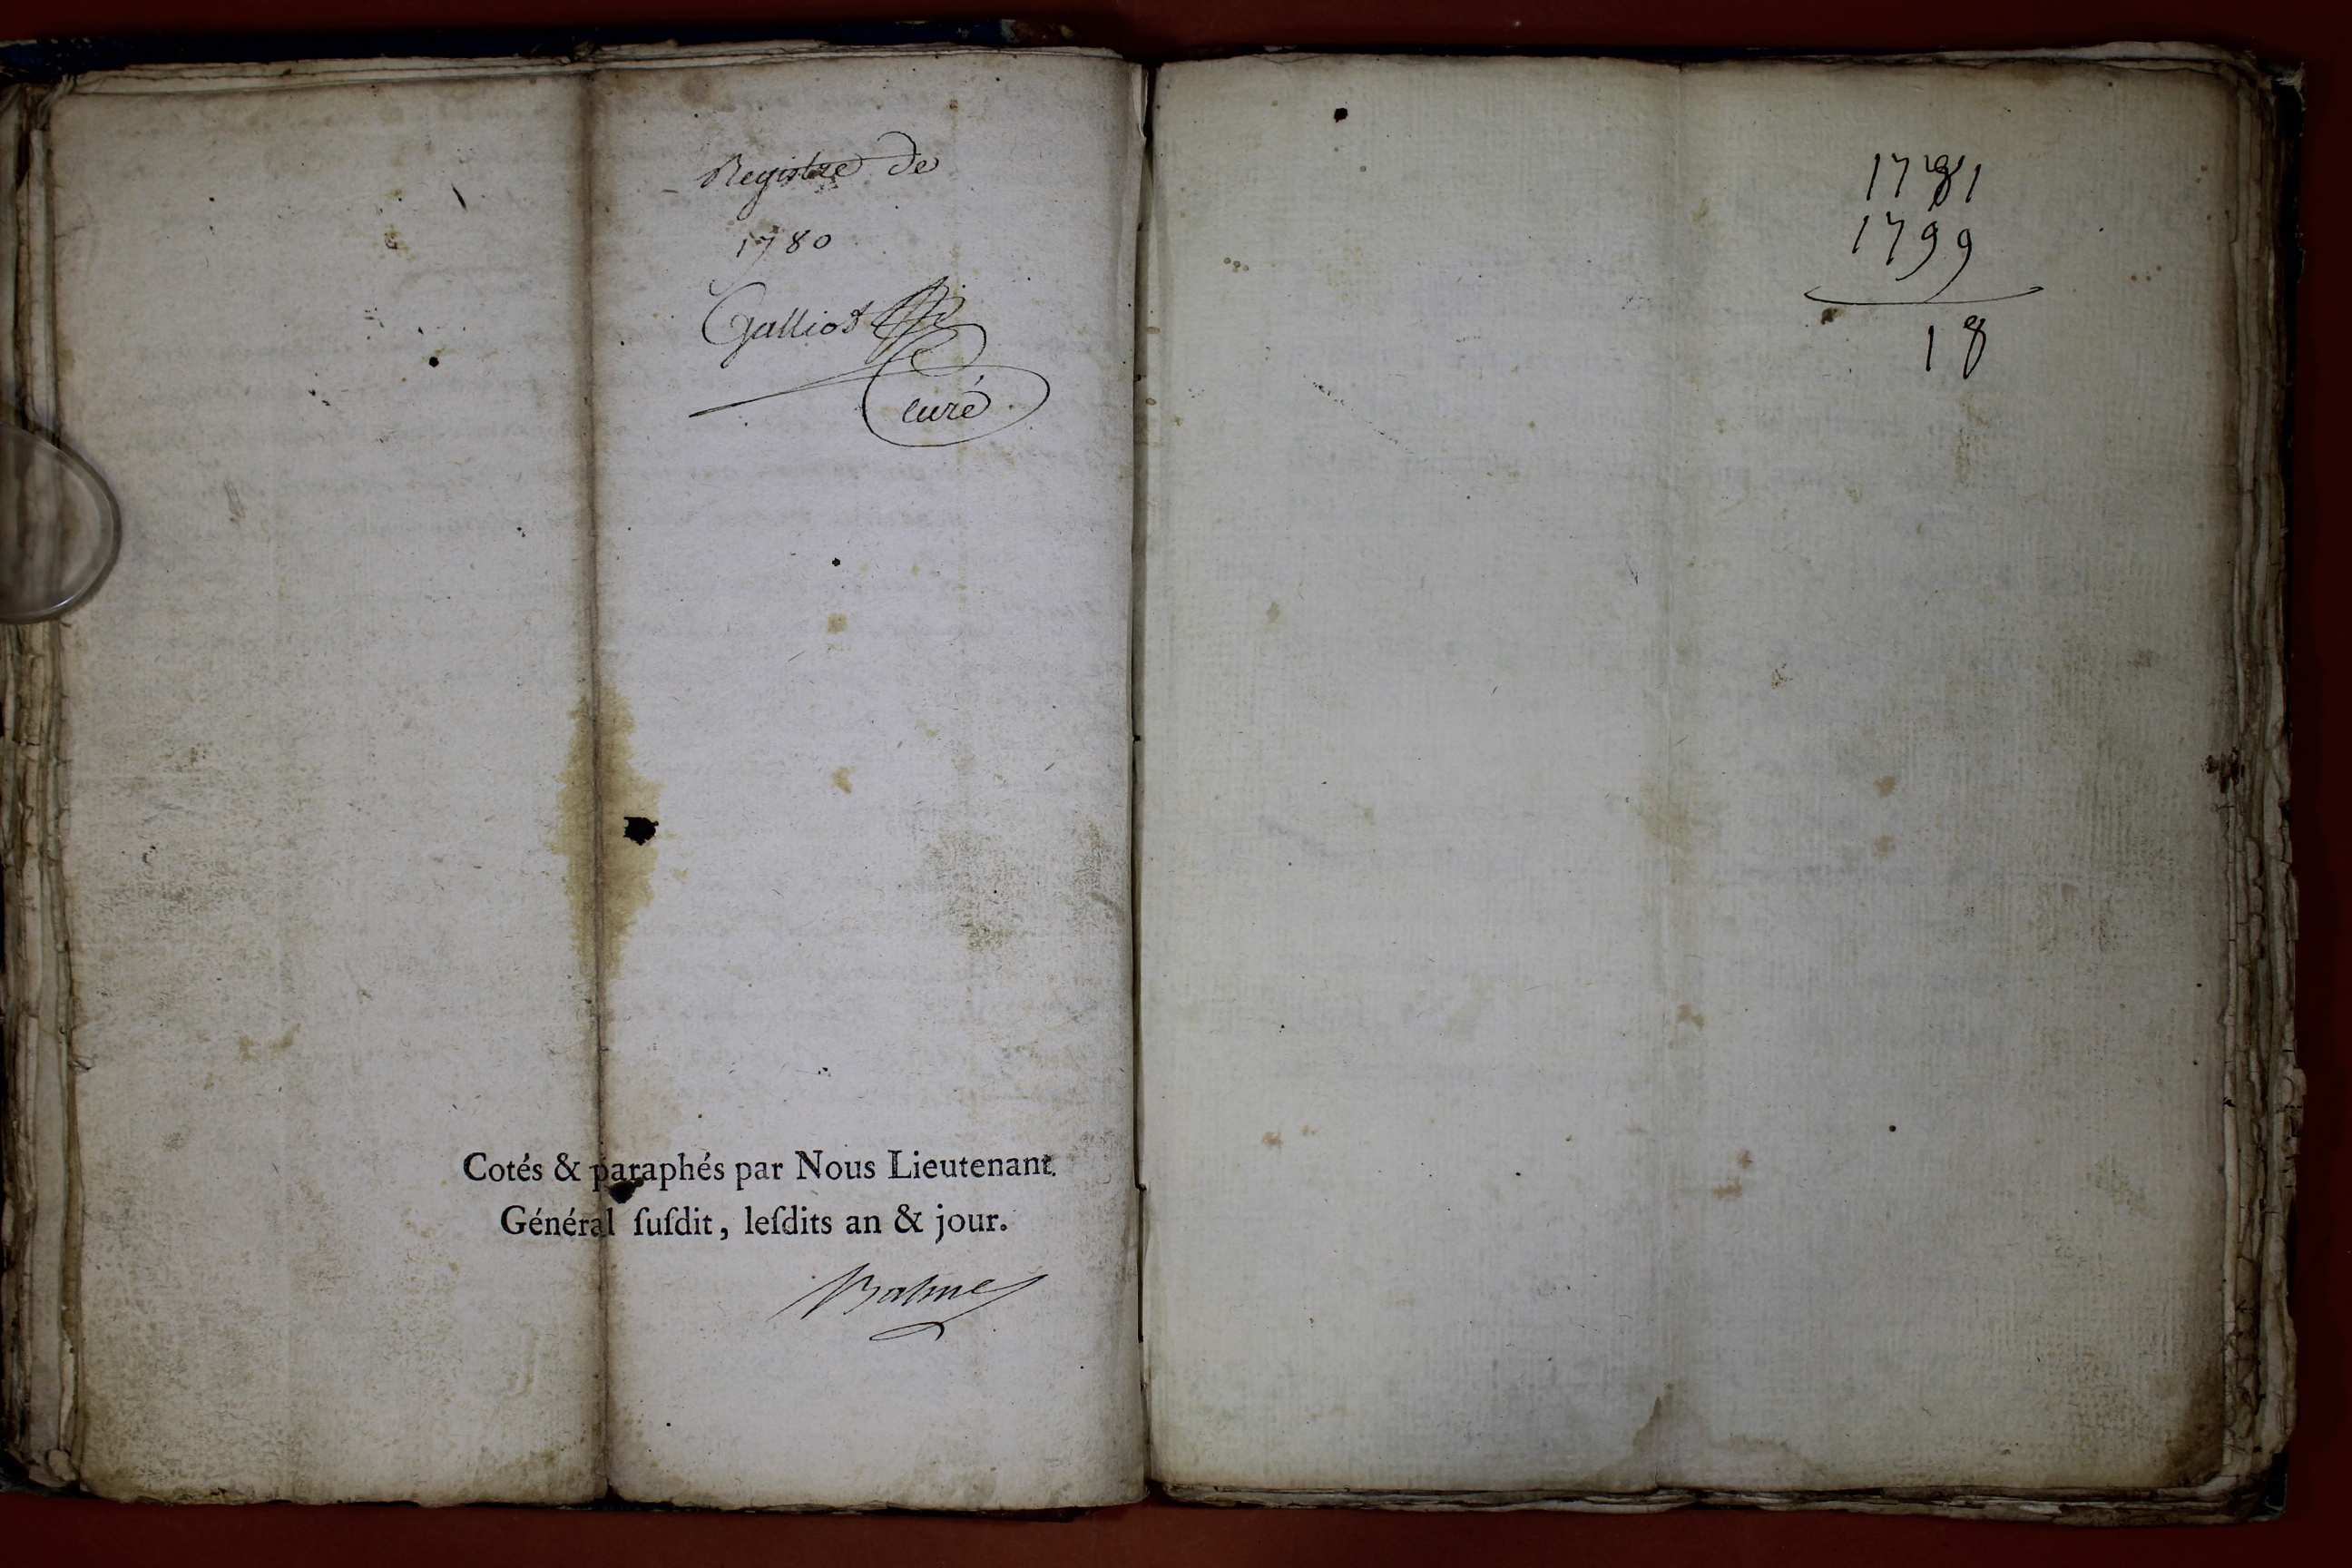 Registre de
1780
Galliot
curé
Cotés & paraphés par Nous Lieutenant
Général ſuſdit, leſdits an & jour.
Balme
1781
1799
18